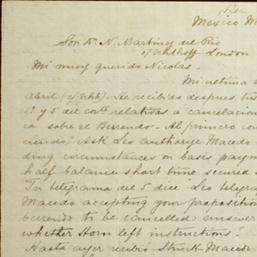 Mexico M
Sor. Dn. N. Martinez del Rio
c/o Uhthoff London
Mi muy querido Nicolas.
Mi ultima
abril (c/o Uht). He recibido despues tus
1º y 5 del cor. relativas a cancelacion
ca sobre el Berendo. Al primero con
ciendo: Ask Leo authorize Macedo
ding circumstances on bases paym
half balance short time secured
Tu telegrama del 5 dice Leo telegra
Macedo accepting your proposition
Berendo to be cancelled answer
whether Horn left instructions?
Hasta ayer recibio Struck-Macedo